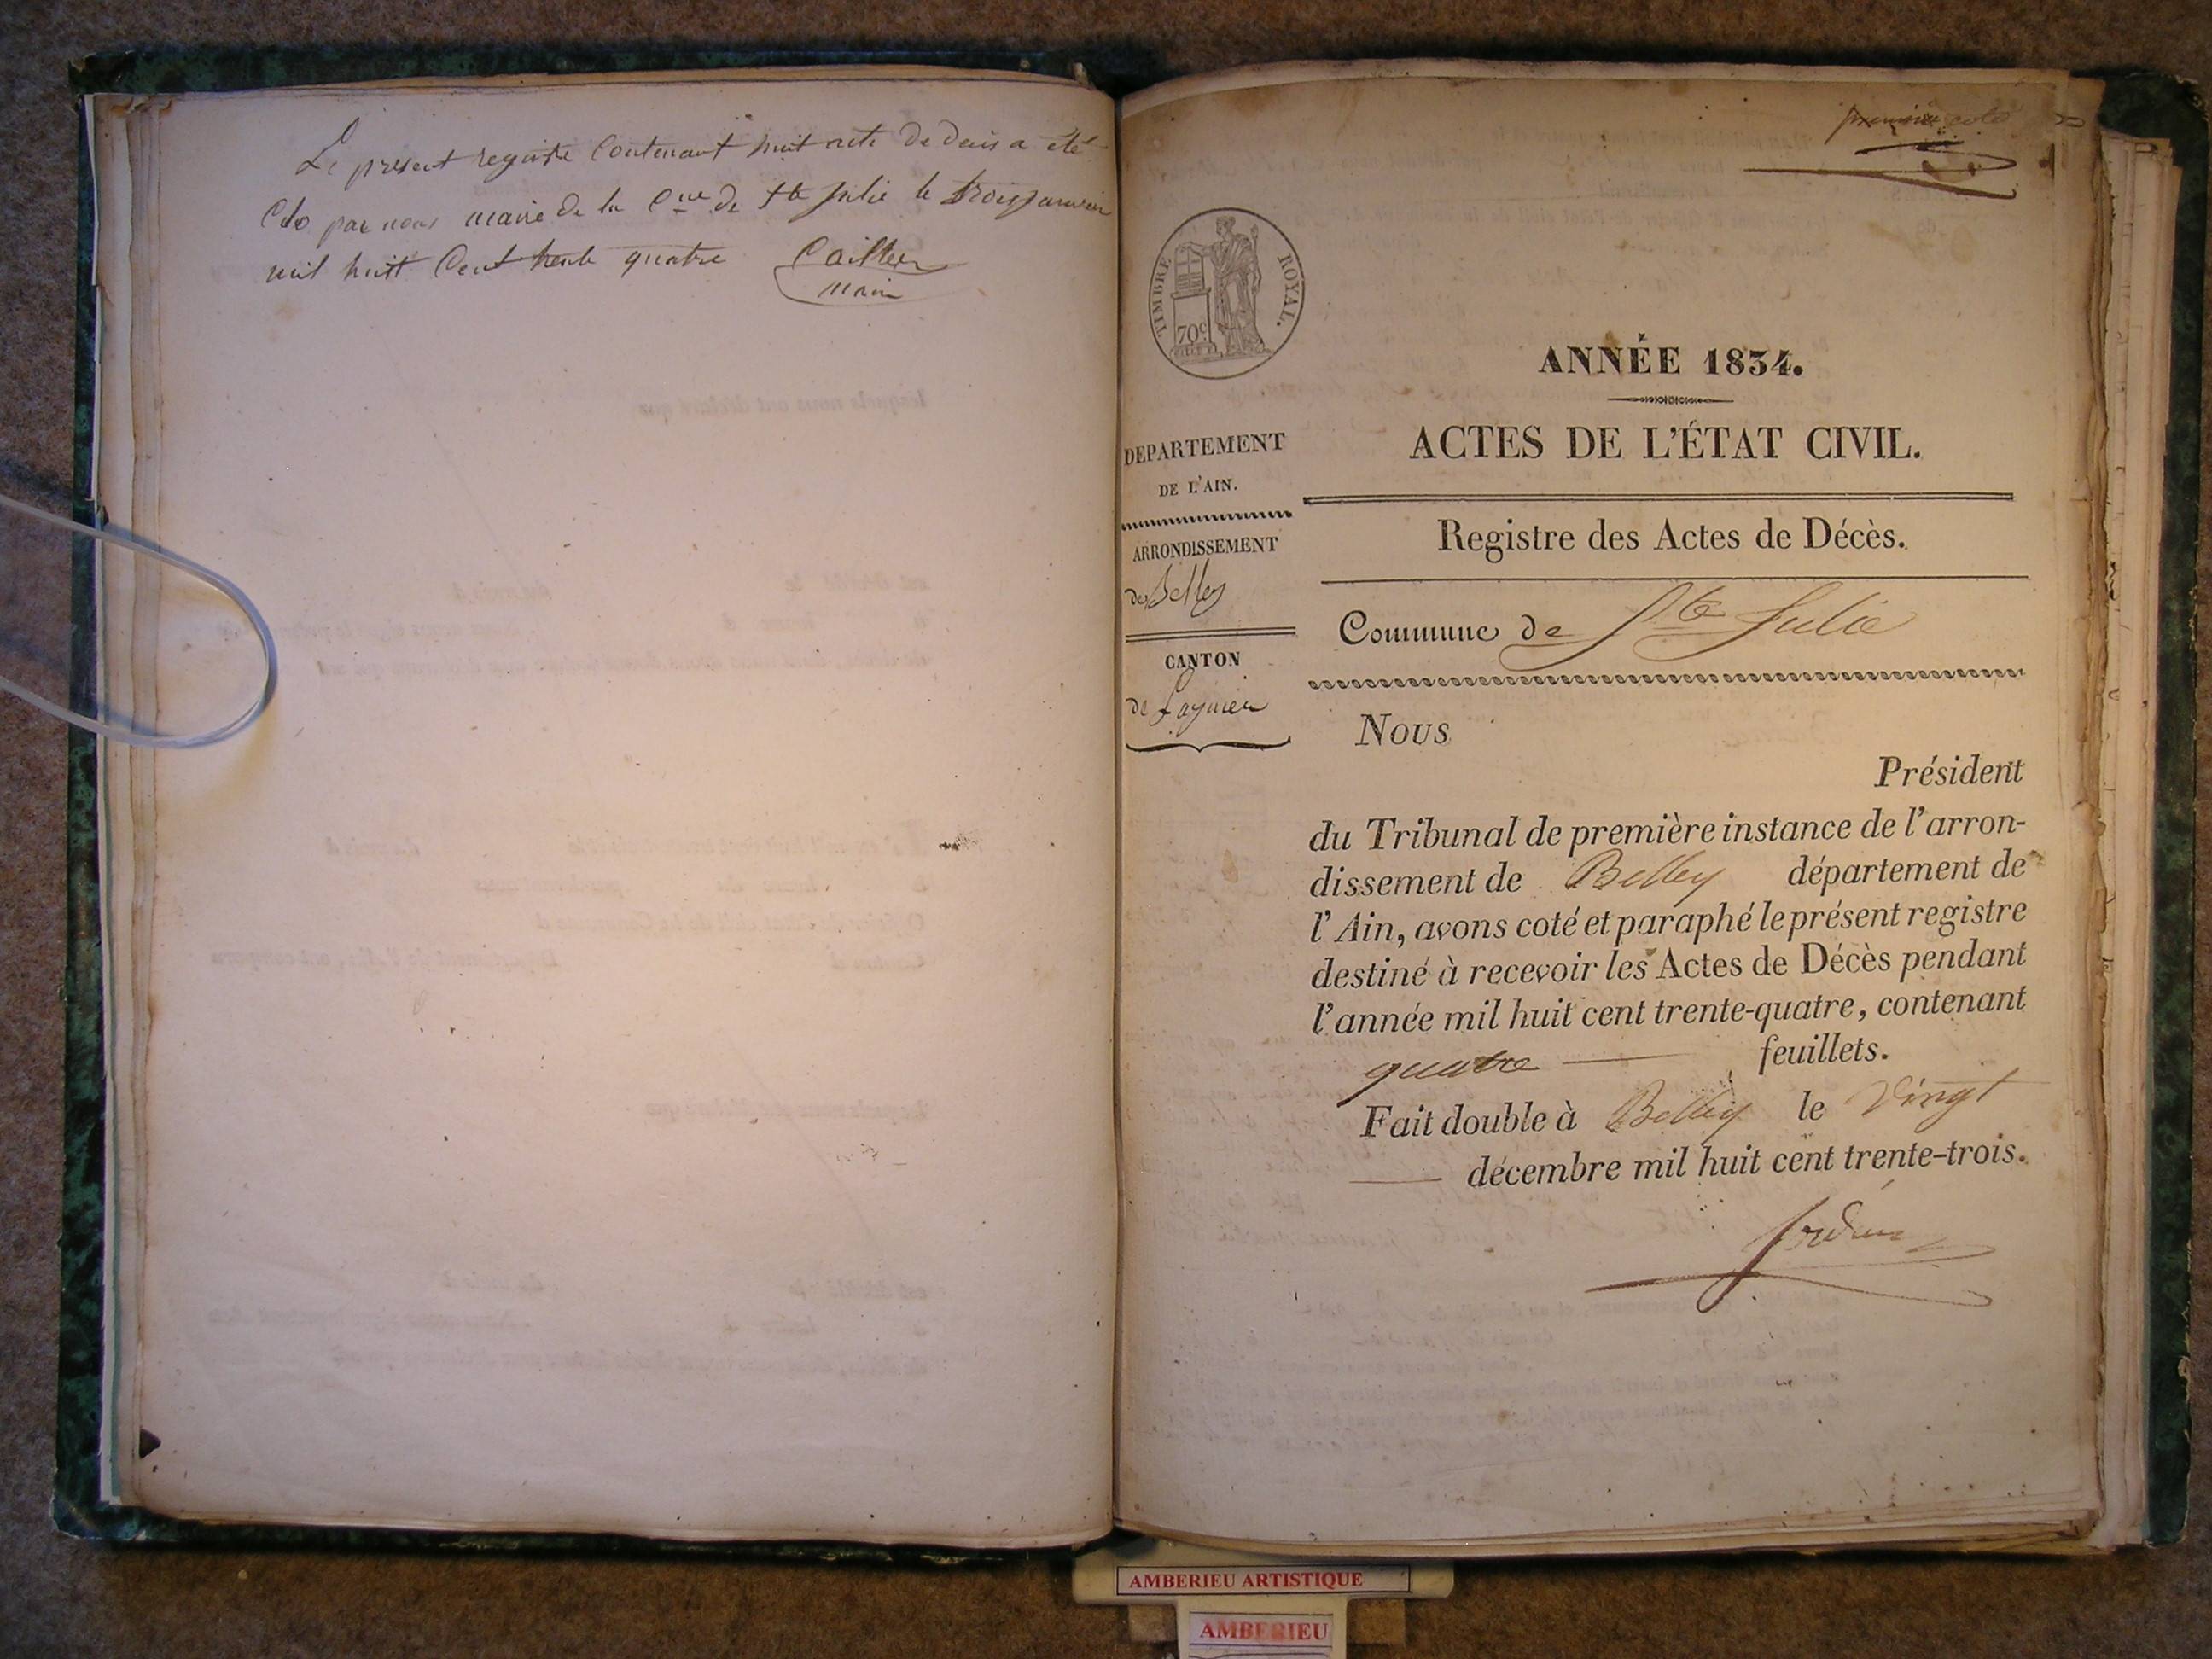 Le présent registre Contenant huit acte de decès a été
Clo par nous maire de la Cne de Ste Julie le trois janvier
mil huit Cent trente quatre Caillet
maire
première
TIMBRE ROYAL.
70c
ANNÉE 1834.
ACTES DE L'ÉTAT CIVIL.
DEPARTEMENT
DE L'AIN.
ARRONDISSEMENT
de Belley
CANTON
de Lagnieu
Registre des Actes de Décès.
Commune de Ste Julie
Nous
Président
du Tribunal de première instance de l'arron-
dissement de Belley département de
l'Ain, avons coté et paraphé le présent registre
destiné à recevoir les Actes de Décès pendant
l'année mil huit cent trente-quatre, contenant
quatre feuillets.
Fait double à Belley le Vingt
décembre mil huit cent trente-trois.
AMBERIEU ARTISTIQUE
AMBERIEU